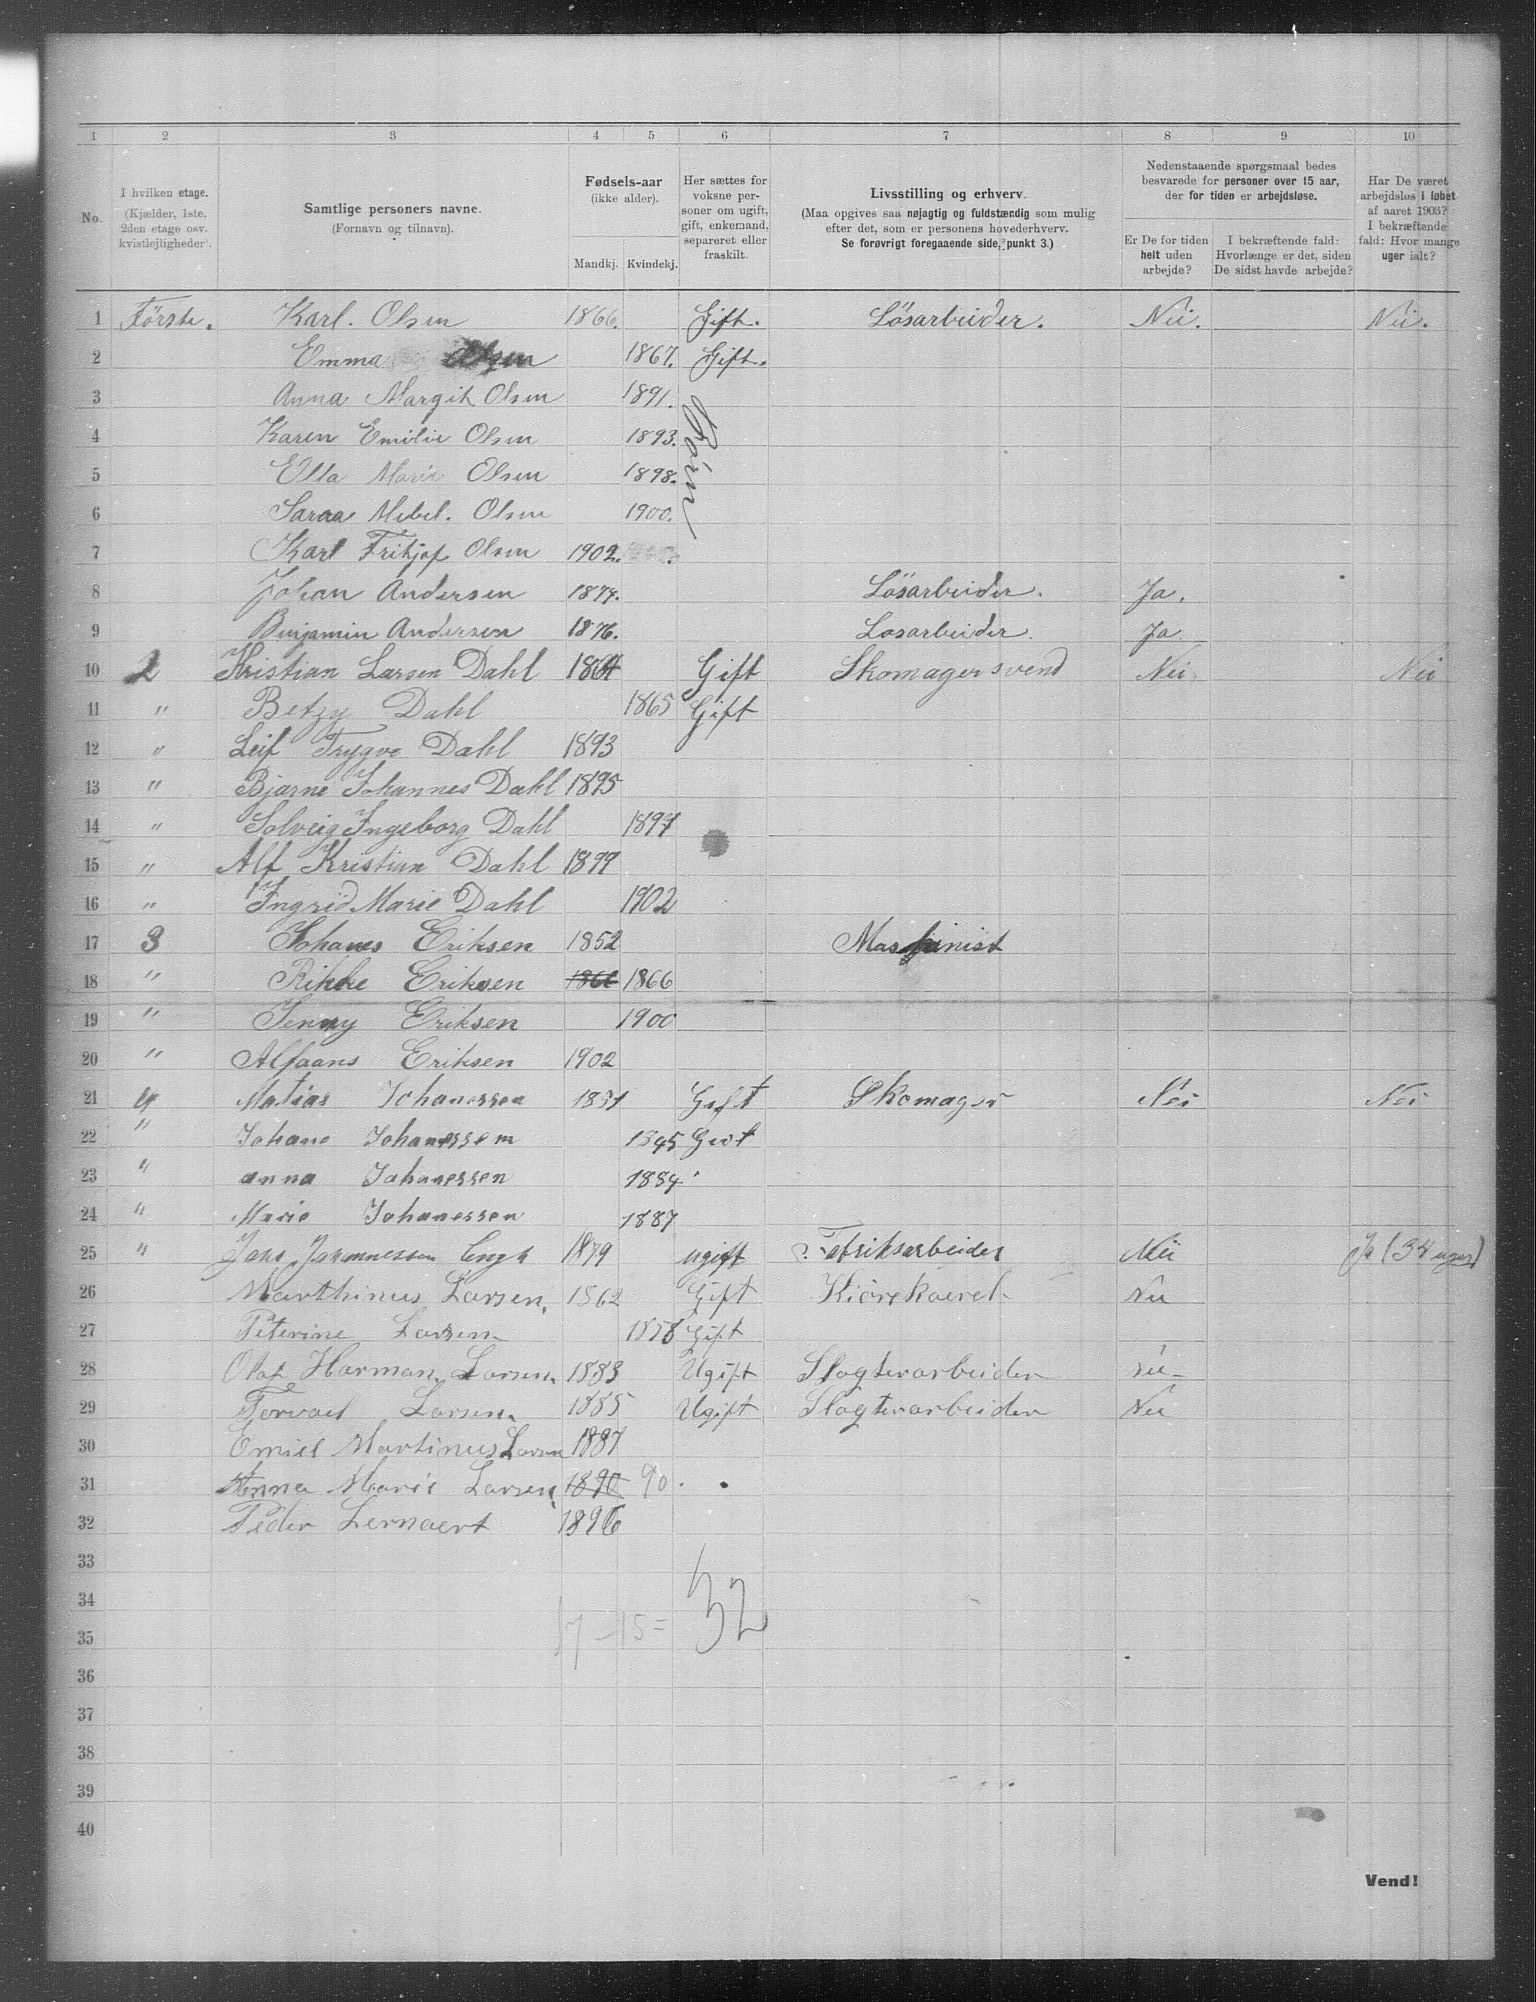 1 2 3 4 5 6 7 8 9 10
No.
I hvilken etage.
(Kjælder, 1ste,
2den etage osv.
kvistlejligheder).
Samtlige personers navne.
(Fornavn og tilnavn).
Fødsels-aar
(ikke alder).
Mandkj. Kvindekj.
Her sættes for
voksne per-
soner om ugift,
gift, enkemand,
separeret eller
fraskilt.
Livsstilling og erhverv.
(Maa opgives saa nøjagtig og fuldstændig som mulig
efter det, som er personens hovederhverv.
Se forøvrigt foregaaende side, punkt 3.)
Nedenstaaende spørgsmaal bedes
besvarede for personer over 15 aar,
der for tiden er arbejdsløse.
Er De for tiden
helt uden
arbejde?
I bekræftende fald:
Hvorlænge er det, siden
De sidst havde arbejde?
Har De været
arbejdsløs i løbet
af aaret 1903?
I bekræftende
fald: Hvor mange
uger ialt?
1 Förste. Karl. Olsen 1866. Gift. Lösarbeider. Nei. Nei.
2 Emma Olsen 1867. Gift.
3 Anna Margit Olsen 1891.
4 Karen Emilie Olsen 1893.
5 Ella Marie Olsen 1898.
6 Saraa Mebel. Olsen 1900.
7 Karl Fritjof Olsen 1902.
Börn
8 Johan Andersen 1874. Lösarbeider. Ja.
9 Benjamin Andersen 1876. Losarbeider. Ja
10 2 Kristian Larsen Dahl 1864 Gift Skomagersvend Nei Nei
11 " Betzy Dahl 1865 Gift
12 " Leif Trygve Dahl 1893
13 " Bjarne Johannes Dahl 1895
14 " Solveig Ingeborg Dahl 1897
15 " Alf Kristian Dahl 1899
16 " Ingrid Marie Dahl 1902
17 3 Johanes Eriksen 1852 Masjinist
18 " Rikke Eriksen 1866 1866
19 " Jenny Eriksen 1900
20 " Alfaans Eriksen 1902
21 4 Matias Johanessen 1851 Gift Skomager Nei Nei
22 " Johane Johanessem 1845 Givt
23 " anna Johanessen 1884
24 " Marie Johanessen 1887
25 " Johannessen Engh 1879 ugift Fabriksarbeider Nei Ja (34 uger)
26 Marthinus Larsen. 1862 Gift Kiörekaerel Nei
27 Peterine Larsen 1858 Gift
28 Olaf Harman. Larsen. 1883 Ugift Slagterarbeider Nei
29 Torvael Larsen. 1885 Ugift Slagterarbeider Nei
30 Emiel Martinus Larsen 1887
31 Anna Marie Larsen 1890 90
32 Peder Lernaert 1896
33
34
17 - 15 = 32
35
36
37
38
39
40
Vend!